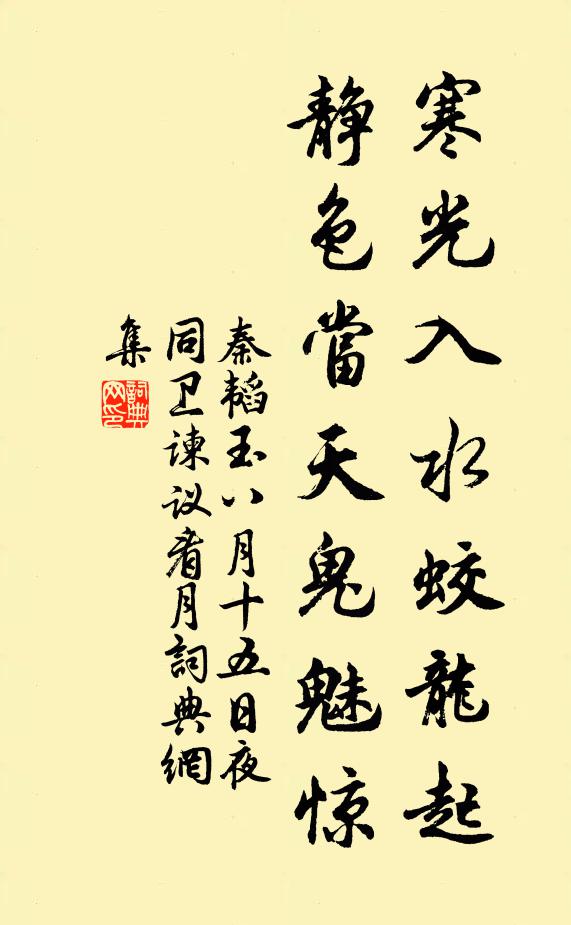 寒光入水蛟龍起
静色當天鬼魅惊
秦韬玉八月十五日夜
同卫谏议看月詞典網
集
詞典网印